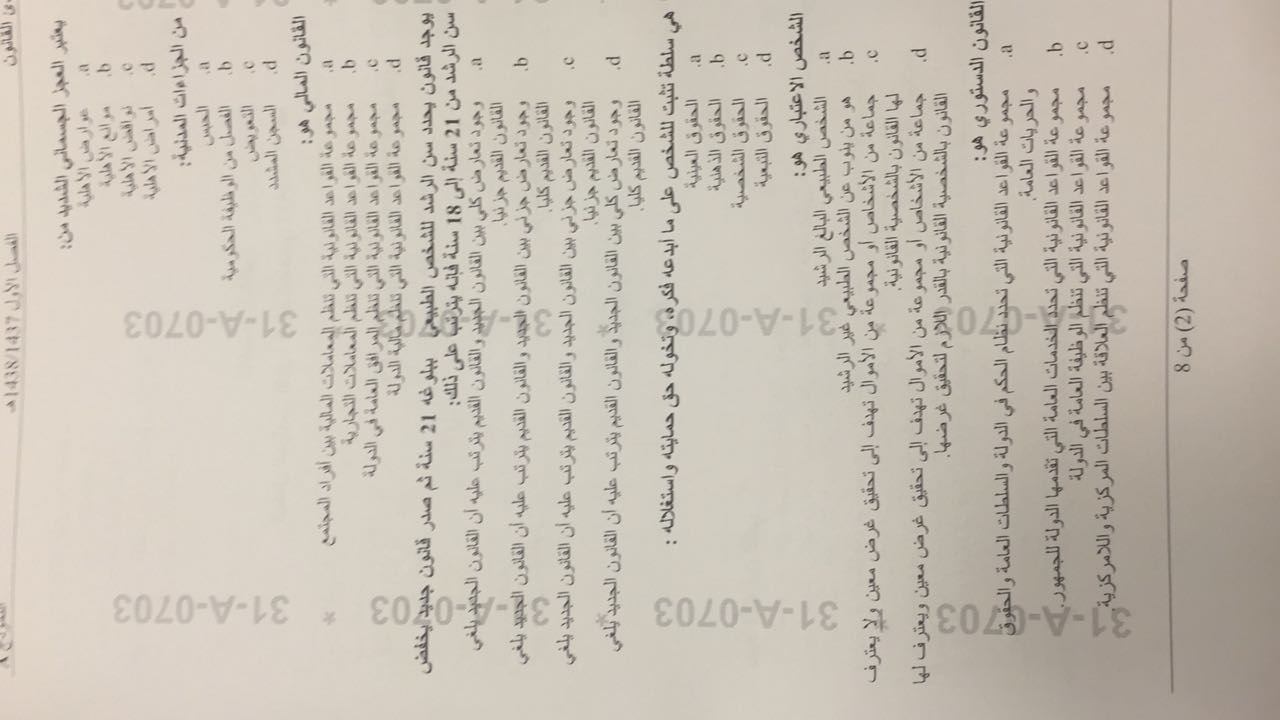 الفصل الأول 1438/1437هـ
يعتبر العجز الجسماني الشديد من:
a. عوارض الأهلية
b. موانع الأهلية
c. نواقض الأهلية
d. أمراض الأهلية
من الجزاءات المدنية:
a. الحبس
b. الفصل من الوظيفة الحكومية
c. التعويض
d. السجن المشدد
القانون المالي هو:
a. مجموعة القواعد القانونية التي تنظم المعاملات المالية بين أفراد المجتمع
b. مجموعة القواعد القانونية التي تنظم المعاملات التجارية
c. مجموعة القواعد القانونية التي تنظم المرافق العامة في الدولة
d. مجموعة القواعد القانونية التي تنظم مالية الدولة
يوجد قانون يحدد سن الرشد للشخص الطبيعي ببلوغه 21 سنة ثم صدر قانون جديد يخفض
سن الرشد من 21 سنة إلى 18 سنة فإنه يترتب على ذلك:
a. وجود تعارض كلي بين القانون الجديد والقانون القديم يترتب عليه أن القانون الجديد يلغي
القانون القديم جزئيا.
b. وجود تعارض جزئي بين القانون الجديد والقانون القديم يترتب عليه أن القانون الجديد يلغي
القانون القديم كليا.
c. وجود تعارض جزئي بين القانون الجديد والقانون القديم يترتب عليه أن القانون الجديد يلغي
القانون القديم جزئيا.
d. وجود تعارض كلي بين القانون الجديد والقانون القديم يترتب عليه أن القانون الجديد يلغي
القانون القديم كليا.
هي سلطة تثبت للشخص على ما ابدعه فكره، وتخوله حق حمايته واستغلاله :
a. الحقوق العينية
b. الحقوق الذهنية
c. الحقوق الشخصية
d. الحقوق التبعية
الشخص الاعتباري هو:
a. الشخص الطبيعي البالغ الرشيد
b. هو من ينوب عن الشخص الطبيعي غير الرشيد
c. جماعة من الأشخاص أو مجموعة من الأموال تهدف إلى تحقيق غرض معين ولا يعترف
لها القانون بالشخصية القانونية.
d. جماعة من الأشخاص أو مجموعة من الأموال تهدف إلى تحقيق غرض معين ويعترف لها
القانون بالشخصية القانونية بالقدر اللازم لتحقيق غرضها.
القانون الدستوري هو:
a. مجموعة القواعد القانونية التي تحدد نظام الحكم في الدولة والسلطات العامة والحقوق
والحريات العامة.
b. مجموعة القواعد القانونية التي تحدد الخدمات العامة التي تقدمها الدولة للجمهور.
c. مجموعة القواعد القانونية التي تنظم الوظيفة العامة في الدولة
d. مجموعة القواعد القانونية التي تنظم العلاقة بين السلطات المركزية واللامركزية.
صفحة (2) من 8
31-A-0703 * 31-A-0703 * 31-A-0703 * 31-A-0703
31-A-0703 * 31-A-0703 * 31-A-0703 * 31-A-0703